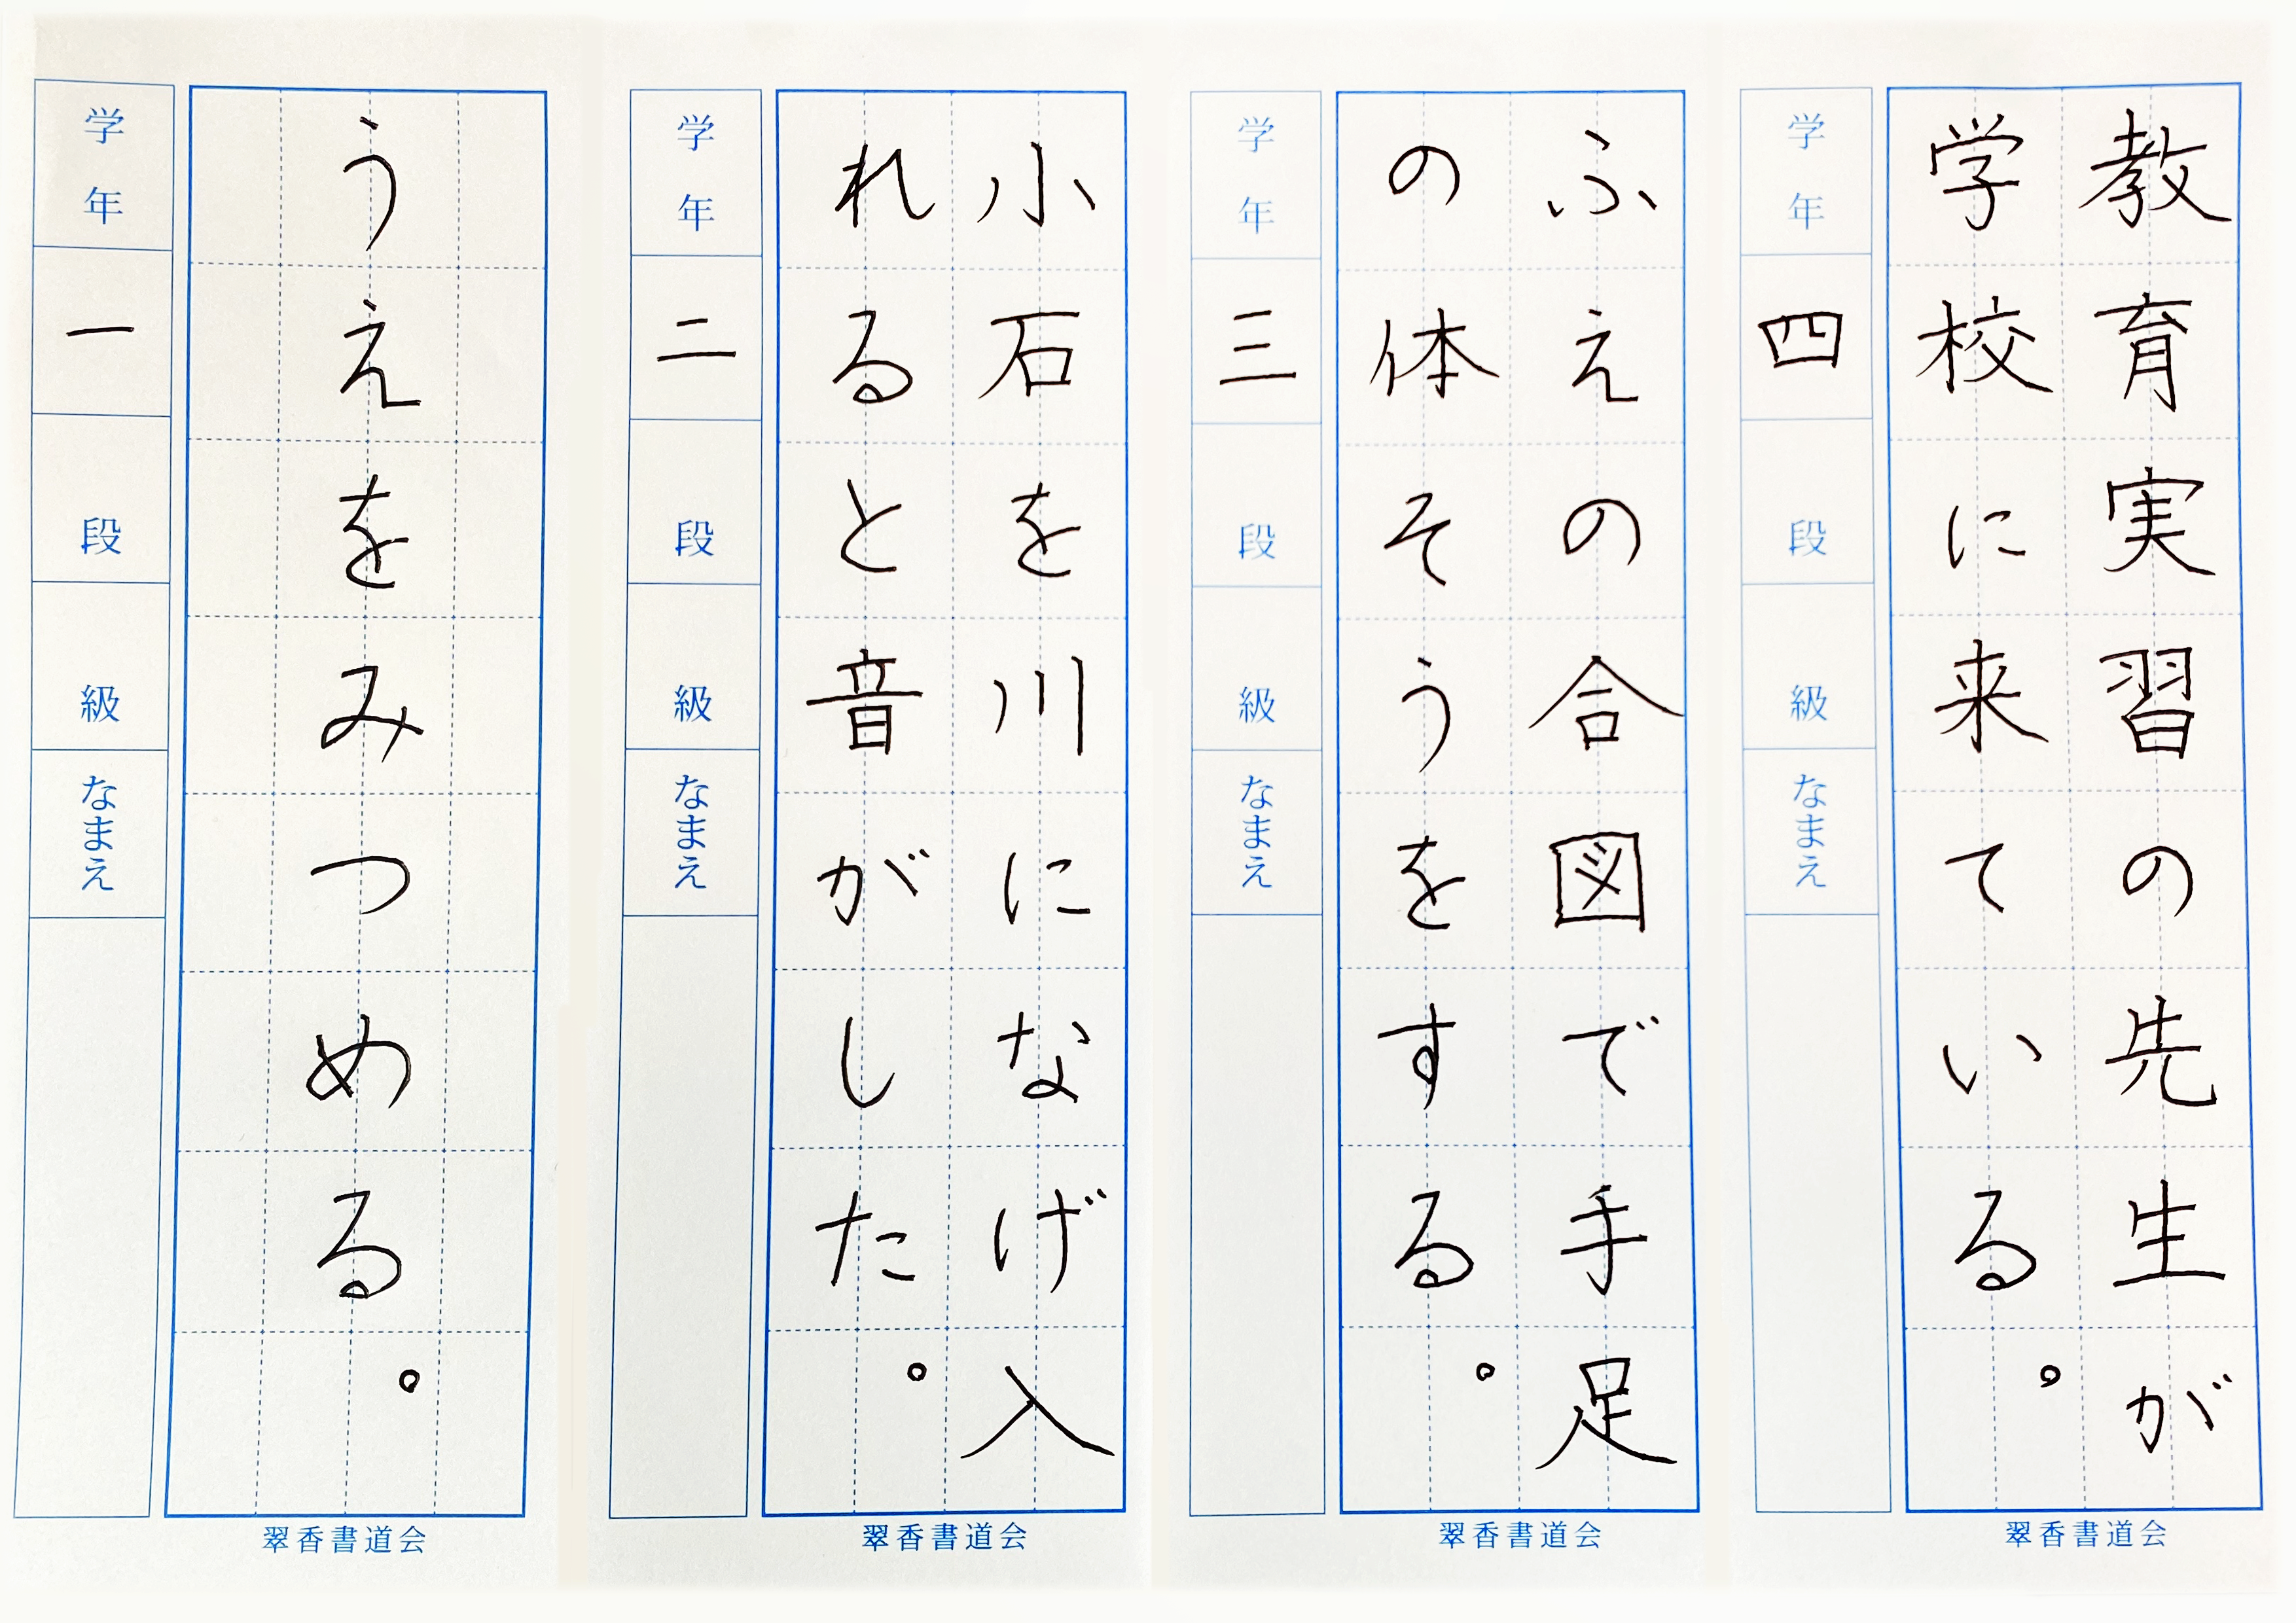 教育実習の先生が
学校に来ている。
学年
四
段
級
なまえ
翠香書道会
ふえの合図で手足
の体そうをする。
学年
三
段
級
なまえ
翠香書道会
小石を川になげ入
れると音がした。
学年
二
段
級
なまえ
翠香書道会
うえをみつめる。
学年
一
段
級
なまえ
翠香書道会